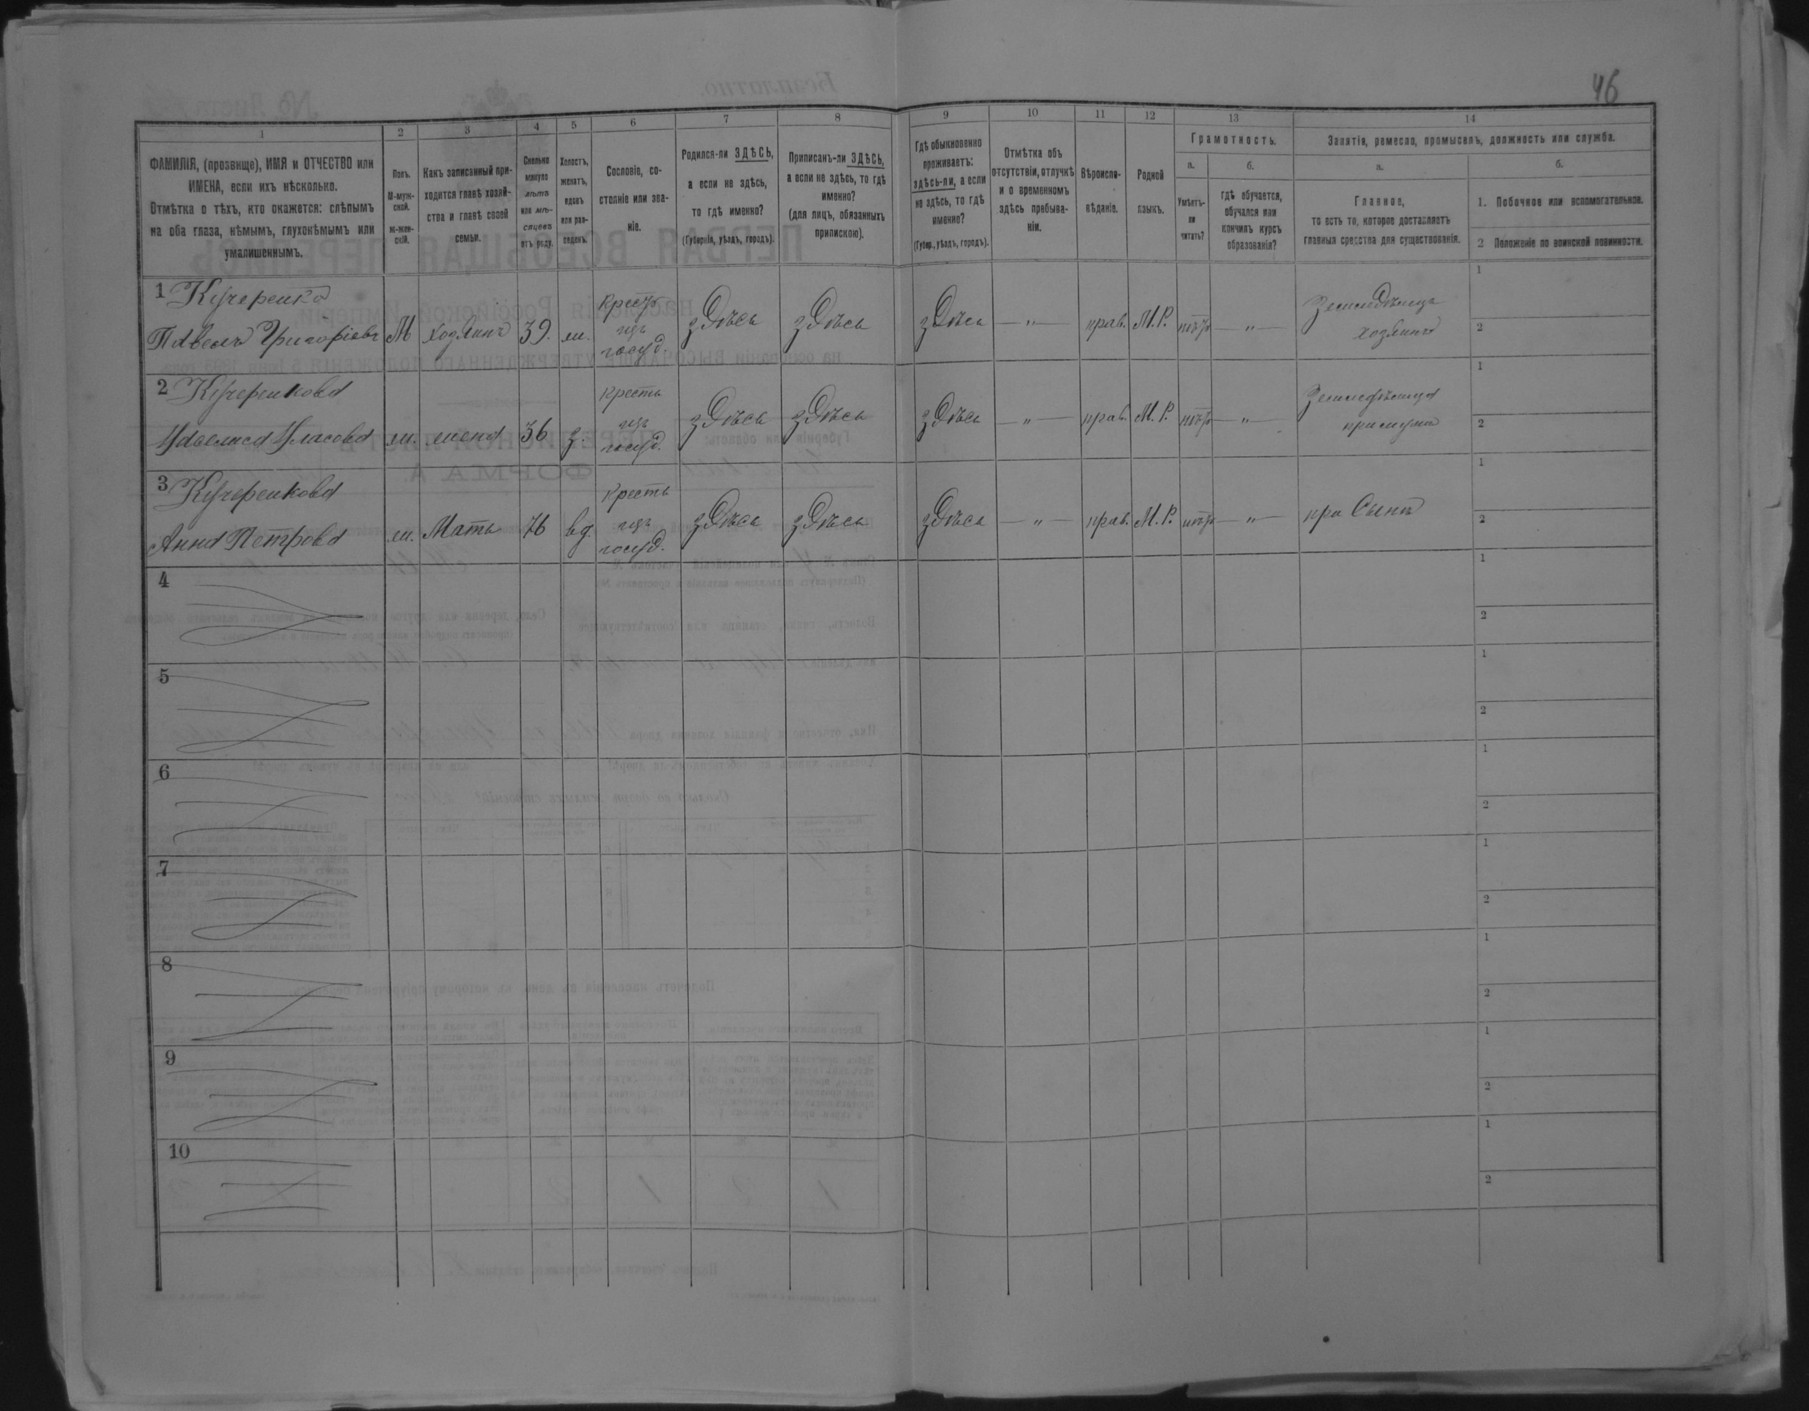 46
1
2
3
4
5
6
7
8
9
10
11
12
13
14
ФАМИЛІЯ, (прозвище), ИМЯ и ОТЧЕСТВО или
ИМЕНА, если ихъ нѣсколько.
Отмѣтка о тѣхъ, кто окажется: слѣпымъ
на оба глаза, нѣмымъ, глухонѣмымъ или
умалишеннымъ.
Полъ.
М-муж-
ской.
ж-жен-
скій.
Какъ записанный при-
ходится главѣ хозяй-
ства и главѣ своей
семьи.
Сколько
минуло
лѣтъ
или мѣ-
сяцевъ
отъ роду.
Холостъ,
женатъ,
вдовъ
или раз-
веденъ.
Сословіе, со-
стояніе или зва-
ніе.
Родился-ли ЗДѢСЬ,
а если не здѣсь,
то гдѣ именно?
(Губернія, уѣздъ, городъ).
Приписанъ-ли ЗДѢСЬ,
а если не здѣсь, то гдѣ
именно?
(для лицъ, обязанныхъ
припискою).
Гдѣ обыкновенно
проживаетъ:
здѣсь-ли, а если
не здѣсь, то гдѣ
именно?
(Губер., уѣздъ, городъ).
Отмѣтка объ
отсутствіи, отлучкѣ
и о временномъ
здѣсь пребыва-
ніи.
Вѣроиспо-
вѣданіе.
Родной
языкъ.
Грамотность.
а.
б.
Умѣетъ-
ли
читать?
гдѣ обучается,
обучался или
кончилъ курсъ
образованія?
Занятіе, ремесло, промыселъ, должность или служба.
а.
б.
Главное,
то есть то, которое доставляетъ
главныя средства для существованія.
1. Побочное или вспомогательное.
2 Положеніе по воинской повинности.
1 Кучеренко
Павелъ Григоріевъ М хозяинъ 39. ж. крестъ изъ госуд. здѣсь здѣсь здѣсь — „ — прав. М. Р. — „ — Земледѣлецъ хозяинъ
1
2
2 Кучеренкова
Власова ж. жена 36 з. крестъ изъ госуд. здѣсь здѣсь здѣсь — „ — прав. М. Р. — „ — при мужѣ
1
2
3 Кучеренкова
Анна Петрова ж. Мать 76 вд. крестъ изъ госуд. здѣсь здѣсь здѣсь — „ — прав. М. Р. — „ — при Сынѣ
1
2
4
1
2
5
1
2
6
1
2
7
1
2
8
1
2
9
1
2
10
1
2